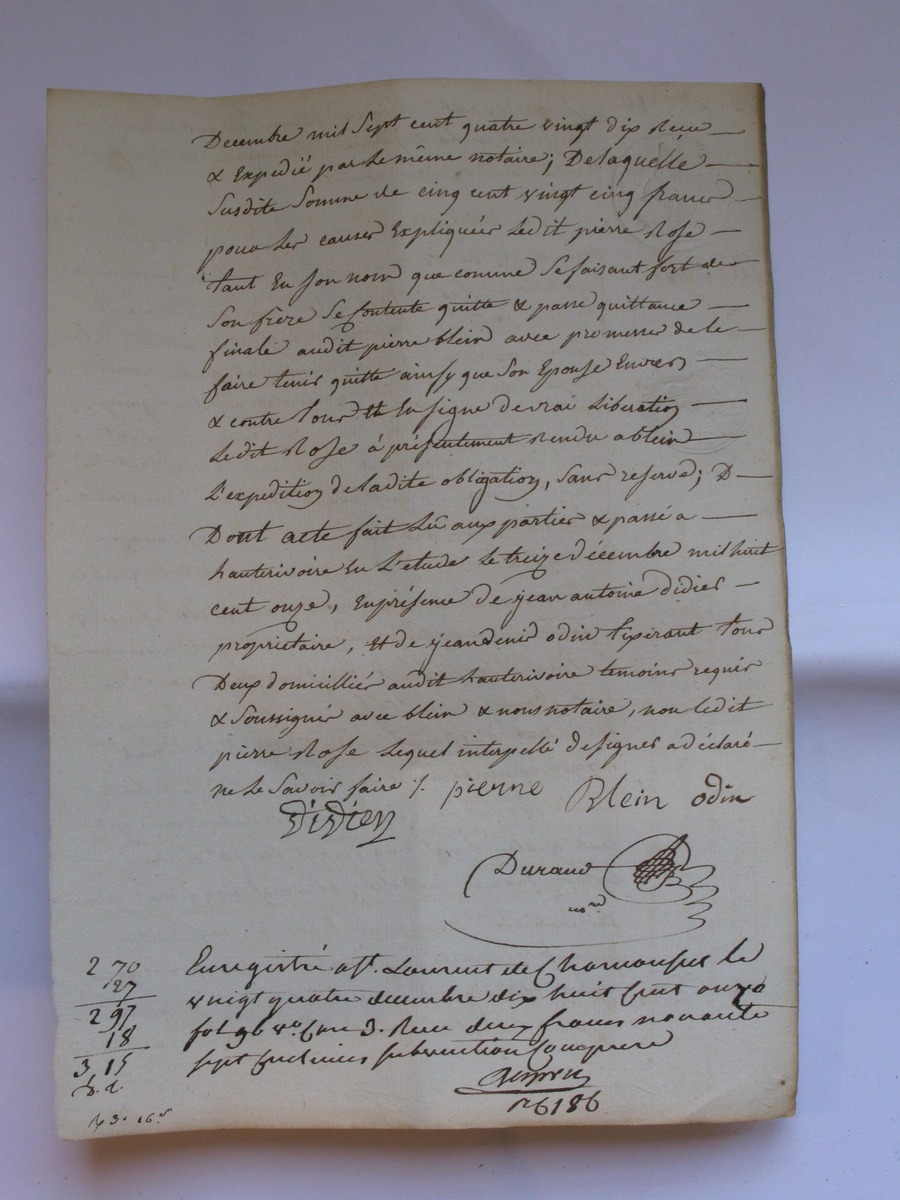 Decembre mil Sept cent quatre vingt dix Recu
& Expedié par Le même notaire; De laquelle
Susdite Somme de cinq cent vingt cinq francs
pour Les causes Expliquées Ledit pierre Rose
tant En son nom que comme Se faisant fort de
Son frère Se Contente quitte & passe quittance
finale audit pierre blein avec promesse de le
faire tenir quitte ainsy que Son Epouse Envers
& contre tous Et En signe de vrai Liberation
Ledit Rose à présentement Rendu a blein
L'expedition de ladite obligation, Sans reserve; D
Dont acte fait Lû aux parties & passé a
hauterivoire En L'etude Le treize décembre mil huit
cent onze, En présence de jean antoine didier
proprietaire, Et de jean denis odin tixerant tous
Deux domiciliés audit hauterivoire temoins requis
& Soussignés avec blein & nous notaire, non ledit
pierre Rose Lequel interpellé de signer a déclaré
ne Le Savoir faire ⁒ pierre Blein odin
Didier
Durand
nore
2 70
27
2 97
18
3, 15
Enregistré a St. Laurent de Chamousset le
vningt quatre decembre dix huit Cent onze
fol 96 vo. Case 3. Recu deux francs nonante
sept Centimes subvention Comprise
6186